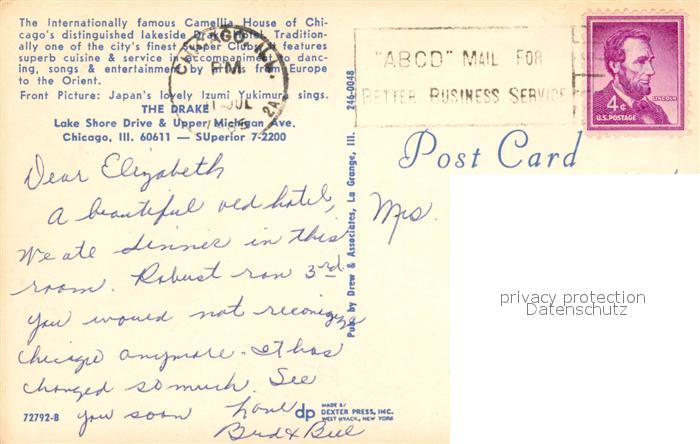 The Internationally famous Camellia House of Chi-
cago's distinguished lakeside Drake Hotel. Tradition-
ally one of the city's finest Supper Clubs, it features
superb cuisine & service in accompaniment to danc-
ing, songs & entertainment by artists from Europe
to the Orient.
Front Picture: Japan's lovely Izumi Yukimura sings.
THE DRAKE
Lake Shore Drive & Upper Michigan Ave.
Chicago, Ill. 60611 — SUperior 7-2200
CHICAGO, ILL.
PM
JUL
2A
"ABCD" MAIL FOR
BETTER BUSINESS SERVICE
4¢
LINCOLN
U.S. POSTAGE
246-0048
Pub. by Drew & Associates, La Grange, Ill.
Post Card
Dear Elizabeth
A beautiful old hotel,
We ate dinner in this
room. Robust ran 3rd.
You would not recognize
Chicago anymore. It has
changed so much. See
you soon Love
Bud & Bill
Mrs.
privacy protection
Datenschutz
72792-B
dp MADE BY
DEXTER PRESS, INC.
WEST NYACK, NEW YORK